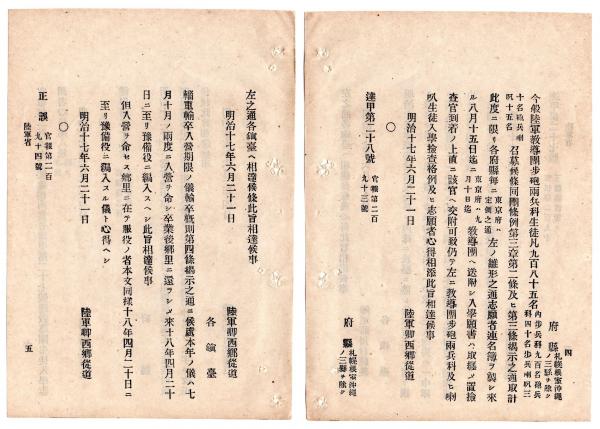 四
府縣 札幌根室沖繩ノ三縣ヲ除ク
今般陸軍教導團歩砲兩兵科生徒凡九百八十五名 内歩兵科九百名砲兵科四十名歩兵喇叭三
十名砲兵喇叭十五名 召募候條同團條例第三章第二條及ヒ第三條揭示之通取計
此度ニ限リ各府縣每ニ 東京府ハ定例之通 左ノ雛形之通志願者連名簿ヲ製シ來
ル八月十五日迄ニ 東京府ハ九月十日迄 教導團ヘ送附シ入學願書ハ取纒メ置撿
查官到着ノ上直ニ該官ヘ交附可致仍テ左ニ教導團歩砲兩兵科及ヒ喇
叭生徒入學撿查格例及ヒ志願者心得相添此旨相達候事
明治十七年六月二十一日 陸軍卿西鄕從道
達甲第二十八號 官報第二百九十三號
府縣 札幌根室沖繩ノ三縣ヲ除ク
左之通各鎭臺ヘ相達候條此旨相達候事
明治十七年六月二十一日 陸軍卿西鄕從道
各鎭臺
輜重輸卒入營期限ノ儀輸卒概則第四條揭示之通ニ候處本年ノ儀ハ七
月十月ノ兩度ニ入營ヲ命シ卒業後鄕里ニ還ラシメ來十八年四月二十
日ニ至リ豫備役ニ編入スヘシ此旨相達候事
但入營ヲ命セス鄕里ニ在テ服役ノ者本文同樣十八年四月二十日ニ
至リ豫備役ニ編入スル儀ト心得ヘシ
明治十七年六月二十一日 陸軍卿西鄕從道
〇
正誤 官報第二百九十四號 陸軍省
五